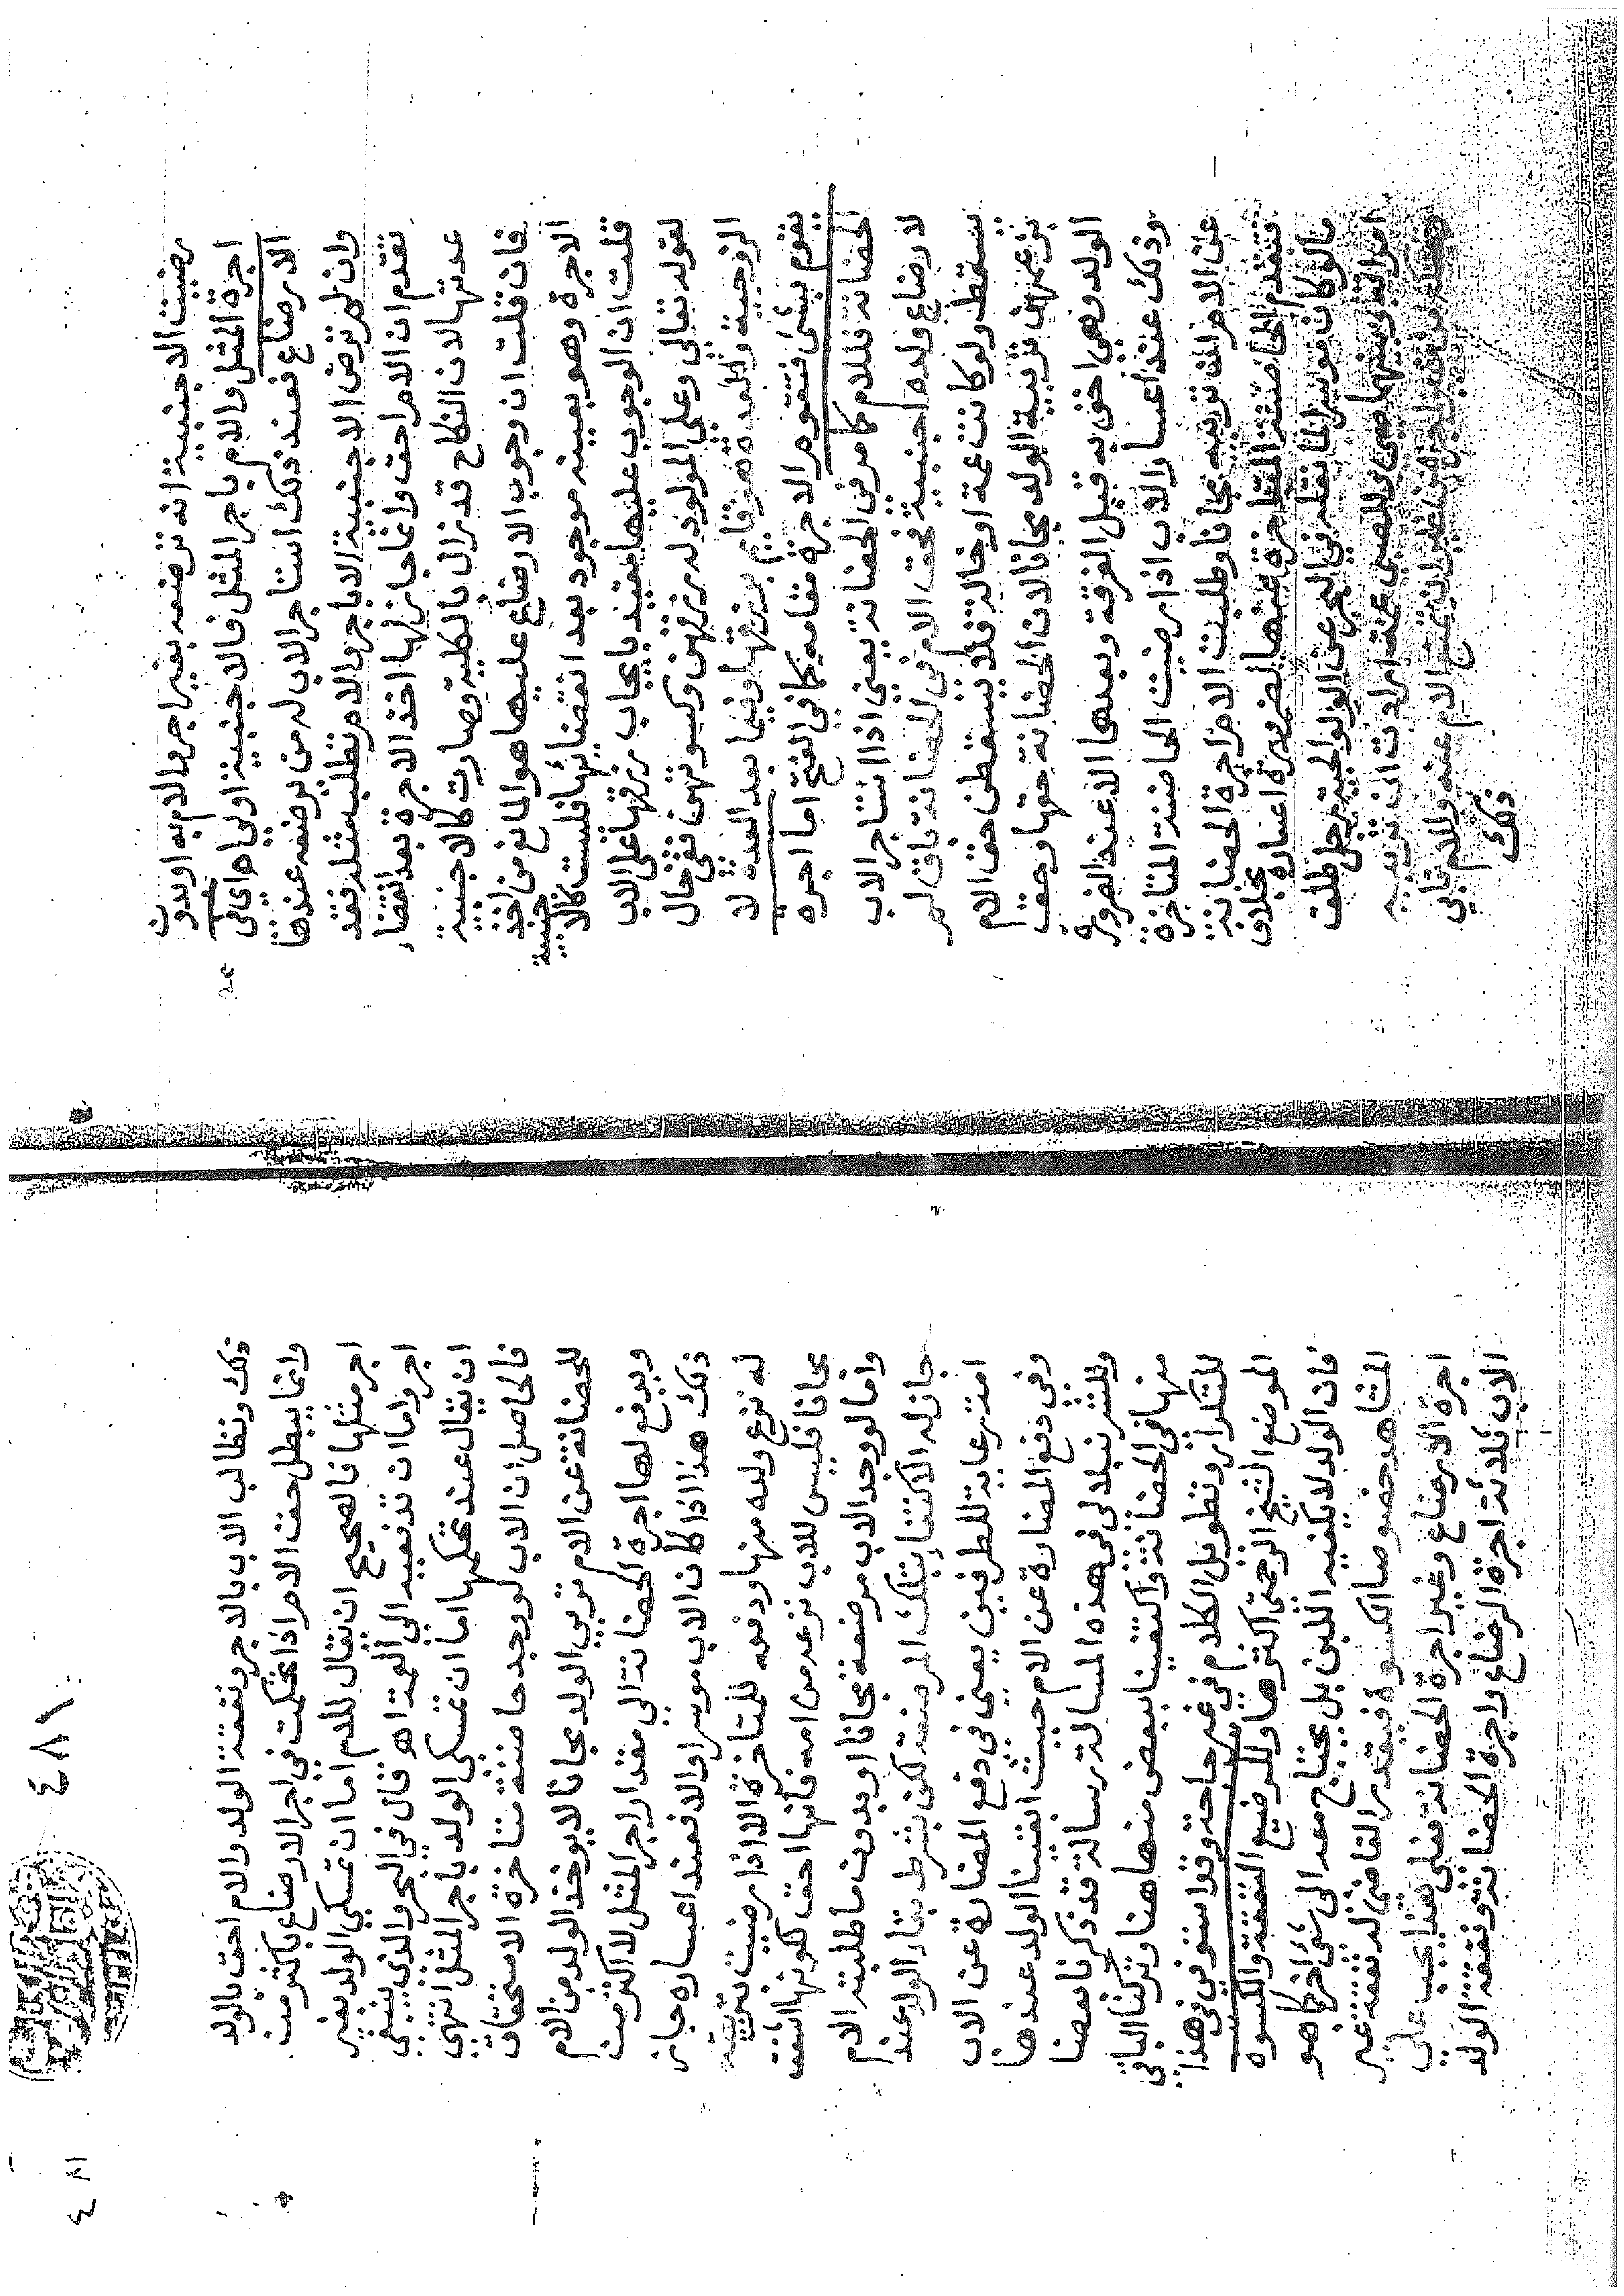 رضيت الاجنبية انه ترضعه بغير اجر والام به او بدون
اجرة المثل والام باجر المثل فالاجنبية اولى اما في
الارضاع فعند ذلك استاجر الاب له من ترضعه عندها
وان لم ترض الاجنبية الا باجر والام تطلب مثله فقد
تقدم ان الام احق وانما جاز لها اخذ الاجرة بعد انقضاء
عدتها لان النكاح قد زال بالكلية وصارت كالاجنبية
فان قلت ان وجوب الارضاع عليها هو المانع من اخذ
الاجرة وهو بعينه موجود بعد انقضائها فليست كالاجنبية
قلت ان الوجوب عليها مقيد بايجاب رزقها على الاب
لقوله تعالى وعلى المولود له رزقهن وكسوتهن ففي حال
الزوجية والعدة هو قايم برزقها وفيما بعد العدة لا
يقوم بشئ فتقوم الاجرة مقامه كما في الفتح اما اجرة
الحضانة فللام كما مر في الحضانة يعني اذا استاجر الاب
لارضاع ولده اجنبية فحق الام في الحضانة باق لم
يسقط ولو كانت عمة او خالة فلا يسقطن حق الام
بزعمهن تربية الولد مجانا لان الحضانة حقها وحق
الولد وهي احق به قبل الفرقة وبعدها الا عند الضرورة
وذلك عند اعسار الاب اذا رضيت الحاضنة المتاخرة
عن الام ان تربيه مجانا وطلبت الام اجرة الحضانة
فتقدم الحاضنة المتاخرة عنها لضرورة اعساره بخلاف
ما لو كان موسرا لما نقله في البحر عن الولوالجية رجل طلق
امراته وبينهما صبي وللصبي عمة ارادت ان تربيه
الام عنه والام تابى
ذلك
٤٨١
ذلك وتطالب الاب بالاجر ونفقة الولد والام احق بالولد
وانما يبطل حق الام اذا تحكمت في اجر الارضاع باكثر من
اجر مثلها فالصحيح ان يقال للام اما ان تمسكي الولد بغير
اجر واما ان تدفعيه الى العمة اه قال في البحر والذي ينبغي
ان يقال عند تحكمها اما ان تمسكي الولد باجر المثل انتهى
فالحاصل ان الاب لو وجد حاضنة متاخرة الاستحقاق
للحضانة عن الام تربي الولد مجانا لا يوخذ الولد من الام
ويدفع لها اجرة الحضانة الى مقدار اجر المثل لا اكثر من
ذلك هذا اذا كان الاب موسرا والا فعند اعساره جاز
له نزع ولده منها ودفعه للمتاخرة الا اذا رضيت تربيته
مجانا فليس للاب نزعه من امه فانها احق لكونها اشفق
واما لو وجد الاب مرضعة مجانا او بدون ما طلبته الام
جاز له الاكتفاء بتلك المرضعة لكن بشرط بقاء الولد عند
امه رعاية للطرفين يعني في دفع المضارة عن الاب
وفي دفع المضارة عن الام حيث ابقينا الولد عندها
وللشرنبلالي في هذه المسالة رسالة قد ذكرنا بعضا
منها في الحضانة واكتفينا ببعض منها هنا وتركنا الباقي
للتكرار وتطويل الكلام في غير حاجة وقد استوفى في هذا
الموضع الشيخ الرحمتي اكثرها وللرضيع النفقة والكسوة
فان الولد لا يكفيه اللبن بل يحتاج معه الى شئ اخر كما هو
المشاهد خصوصا الكسوة فيقدر القاضي له نفقة غير
اجرة الارضاع وغير اجرة الحضانة فعلى هذا يجب على
الاب ثلاثة اجرة الرضاع واجرة الحضانة ونفقة الولد
٤٨١